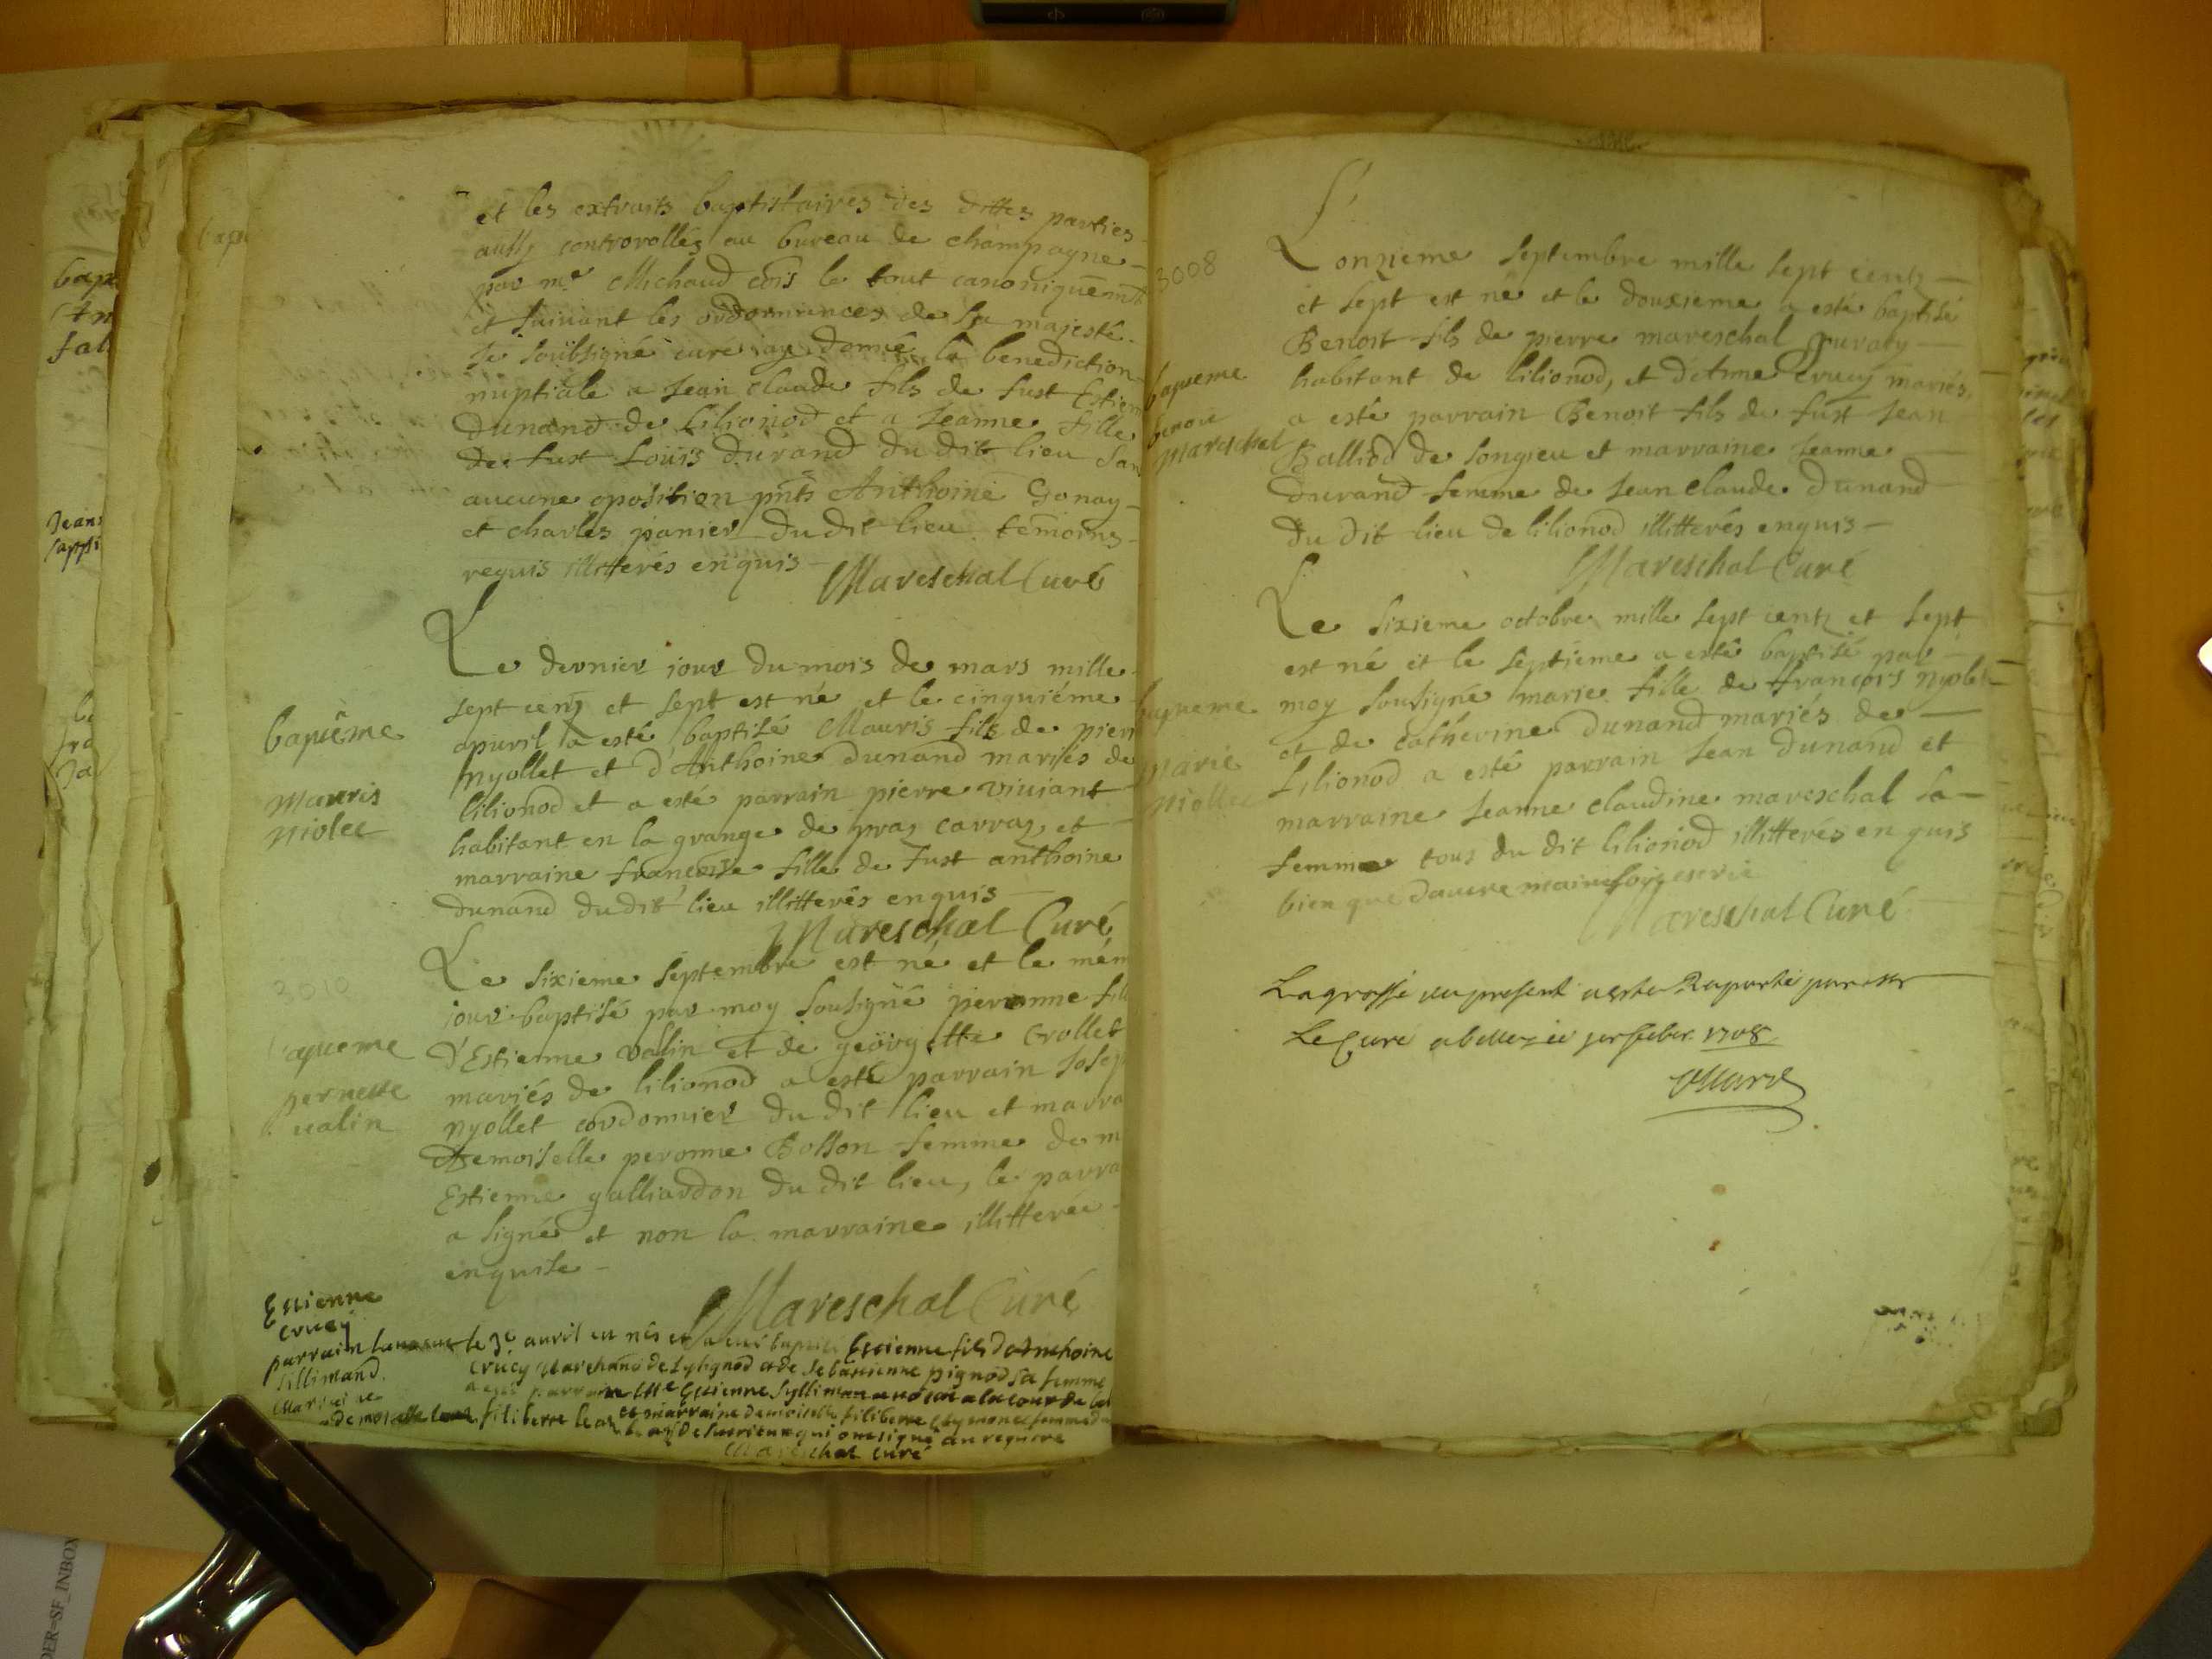 et les extraits baptistaires des dittes parties
aussy controrollés au bureau de champagne
par mr Michaud cõis le tout canoniquemnt
et suivant les ordonnances de sa majesté
Je soubsigné curé iay donné la benediction
nuptiale a Jean claude fils de fust Estien
Dunand de lilionod et a Jeanne fille
de fust Louis durand du dit lieu san
aucune oposition pnts Anthoine Gonay
et charles panier du dit lieu temoins
requis illitterés enquis
Mareschal Curé
Le dernier jour du mois de mars mille
sept centz et sept est né et le cinquiéme
apuril a esté baptisé Mauris fils de pierr
nyollet et d'Anthoine dunand mariés de
lilionod et a esté parrain pierre viuiant
habitant en la grange de praz carraz et
marraine françoise fille de fust anthoine
dunand du dit lieu illitterés enquis
Mareschal Curé
baptême
Mauris
niolet
Le sixieme septembre est né et le mém
jour baptisé par moy sousigné peronne fill
d'Estienne valin et de geörgette Crollet
mariés de lilionod a esté parrain Josep
nyollet cordonnier du dit lieu et marra
demoiselle peronne Bosson femme de m
Estienne galliardon du dit lieu, le parra
a signé et non la marraine illitterée
enquise
Mareschal Curé
3010
bapteme
pernette
valin
Estienne
crucy
parrain
sillimand
le 3e avril est nés et a esté baptisé Estienne fils d'Anthoine
crucy Marchand de Lylignod et de sebastienne pignod sa femme
a esté parrain Estienne Sylliman a la cour de
et marraine demoiselle filiberte
qui ont signé au registre
Mareschal curé
3008
bapteme
benoit
Mareschal
L'onzieme septembre mille sept centz
et sept est né et le douzieme a esté baptisé
Benoit fils de pierre mareschal
habitant de lilionod, et d'Anne crucy mariés
a esté parrain Benoit fils de fust Jean
Balliod de songieu et marraine Jeanne
Durand femme de Jean claude dunand
du dit lieu de lilionod illitterés enquis
Mareschal Curé
bapteme
Marie
niollet
Le sixieme octobre mille sept centz et sept
est né et le septieme a esté baptisé par
moy sousigné marie fille de françois nyollet
et de cathérine dunand mariés de
Lilionod a esté parrain Jean dunand et
marraine Jeanne claudine mareschal sa
femme tous du dit lilionod illitterés enquis
bien que d'autre main soit escrit
Mareschal Curé
La grosse du present a esté Raportée par
Le Curé a belley ce 1708